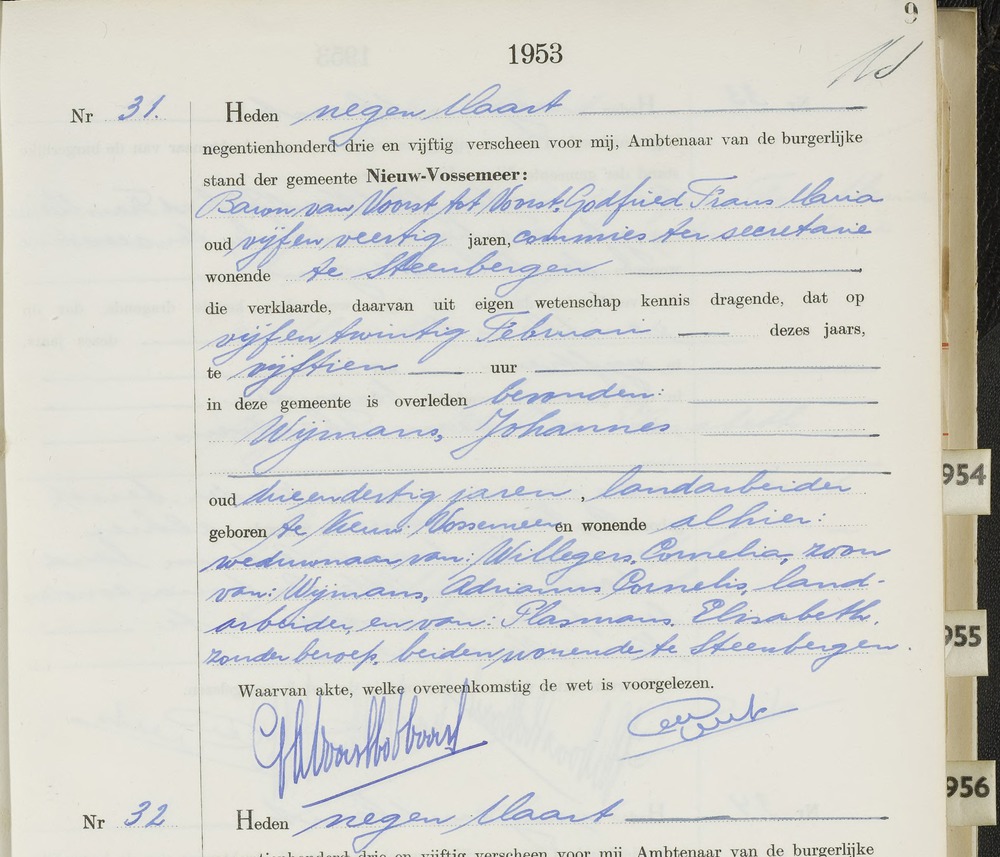 9
1953
Nr 31. Heden negen Maart
negentienhonderd drie en vijftig verscheen voor mij, Ambtenaar van de burgerlijke
stand der gemeente Nieuw-Vossemeer:
Baron van Voorst tot Voorst, Godfried Frans Maria
oud vijfenveertig jaren, commies ter secretarie
wonende te Steenbergen
die verklaarde, daarvan uit eigen wetenschap kennis dragende, dat op
vijfentwintig Februari dezes jaars,
te vijftien uur
in deze gemeente is overleden bevonden:
Wijmans, Johannes
oud drieendertig jaren, landarbeider
geboren te Nieuw-Vossemeer en wonende alhier:
weduwnaar van: Willegers, Cornelia, zoon
van: Wijmans, Adrianus Cornelis, land-
arbeider, en van: Plasmans, Elisabeth,
zonder beroep, beiden wonende te Steenbergen.
Waarvan akte, welke overeenkomstig de wet is voorgelezen.
Nr 32 Heden negen Maart
negentienhonderd drie en vijftig verscheen voor mij, Ambtenaar van de burgerlijke
954
955
956